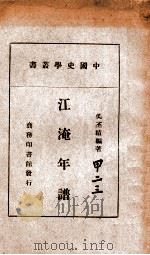 中國史學叢書
吳丕績編著
甲二三
江淹年譜
商務印書館發行